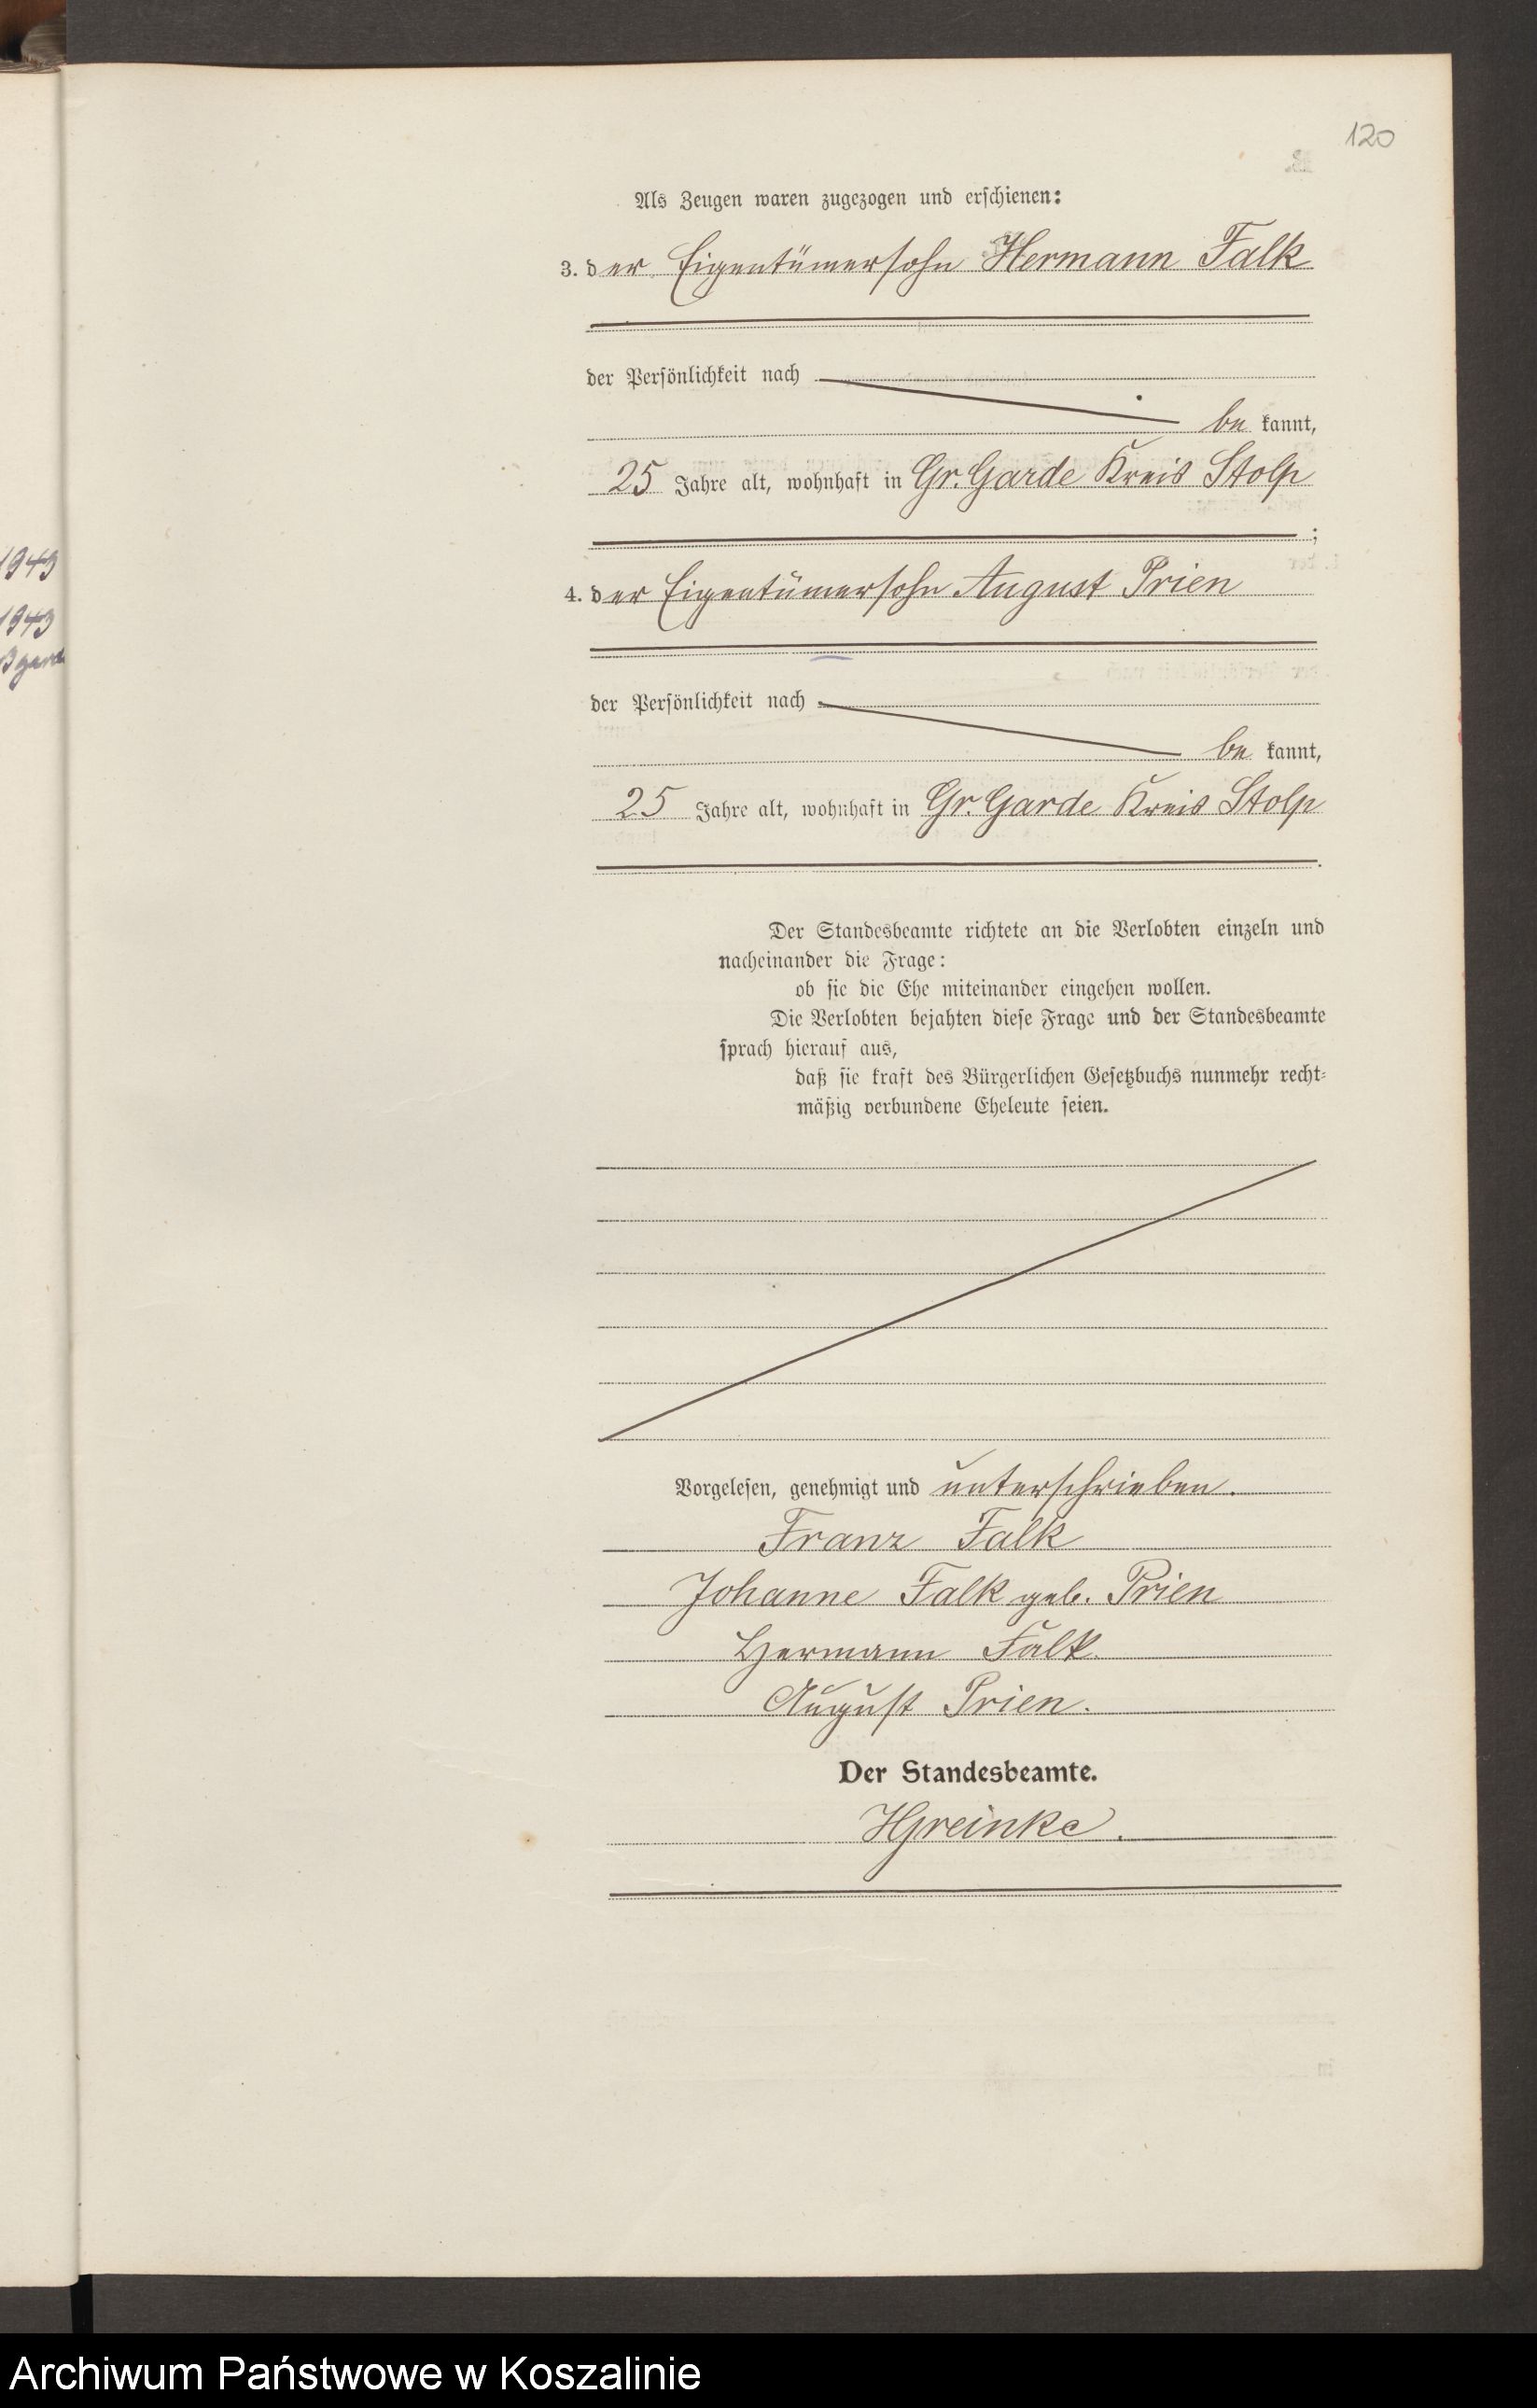 120
Als Zeugen waren zugezogen und erschienen:
3. der Eigentümersohn Hermann Falk
der Persönlichkeit nach
be kannt,
25 Jahre alt, wohnhaft in Gr. Garde Kreis Stolp
;
4. der Eigentümersohn August Prien
der Persönlichkeit nach
be kannt,
25 Jahre alt, wohnhaft in Gr. Garde Kreis Stolp
.
Der Standesbeamte richtete an die Verlobten einzeln und
nacheinander die Frage:
ob sie die Ehe miteinander eingehen wollen.
Die Verlobten bejahten diese Frage und der Standesbeamte
sprach hierauf aus,
daß sie kraft des Bürgerlichen Gesetzbuchs nunmehr recht-
mäßig verbundene Eheleute seien.
Vorgelesen, genehmigt und unterschrieben.
Franz Falk
Johanne Falk geb. Prien
Hermann Falk
August Prien.
Der Standesbeamte.
HGreinke.
1943
1943
Archiwum Państwowe w Koszalinie